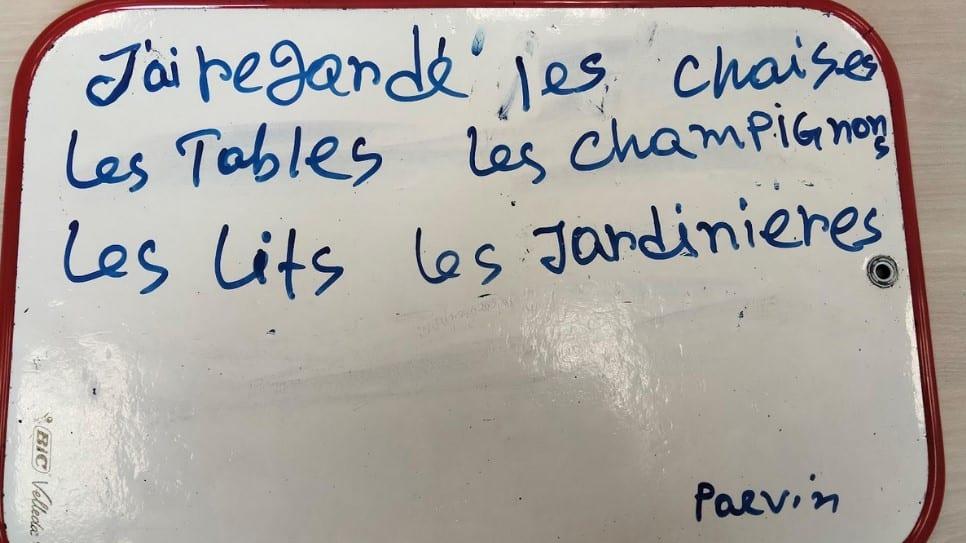 J'ai regardé les chaises
Les Tables Les champignons
Les Lits Les Jardinieres
Parvin
BIC Velleda